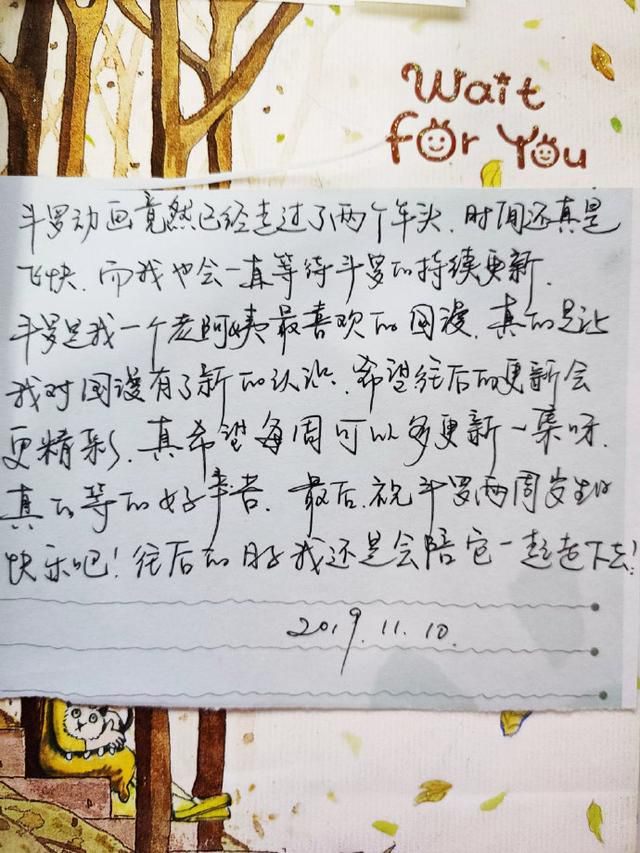 Wait
for You
斗罗动画竟然已经走过了两个年头.时间还真是
飞快.而我也会一直等待斗罗的持续更新.
斗罗是我一个老阿姨最喜欢的国漫.真的是让
我对国漫有了新的认识.希望往后的更新会
更精彩.真希望每周可以多更新一集呀.
真的等的好辛苦.最后.祝斗罗两周岁生日
快乐吧!往后的日子我还是会陪它一起走下去!
2019.11.10.